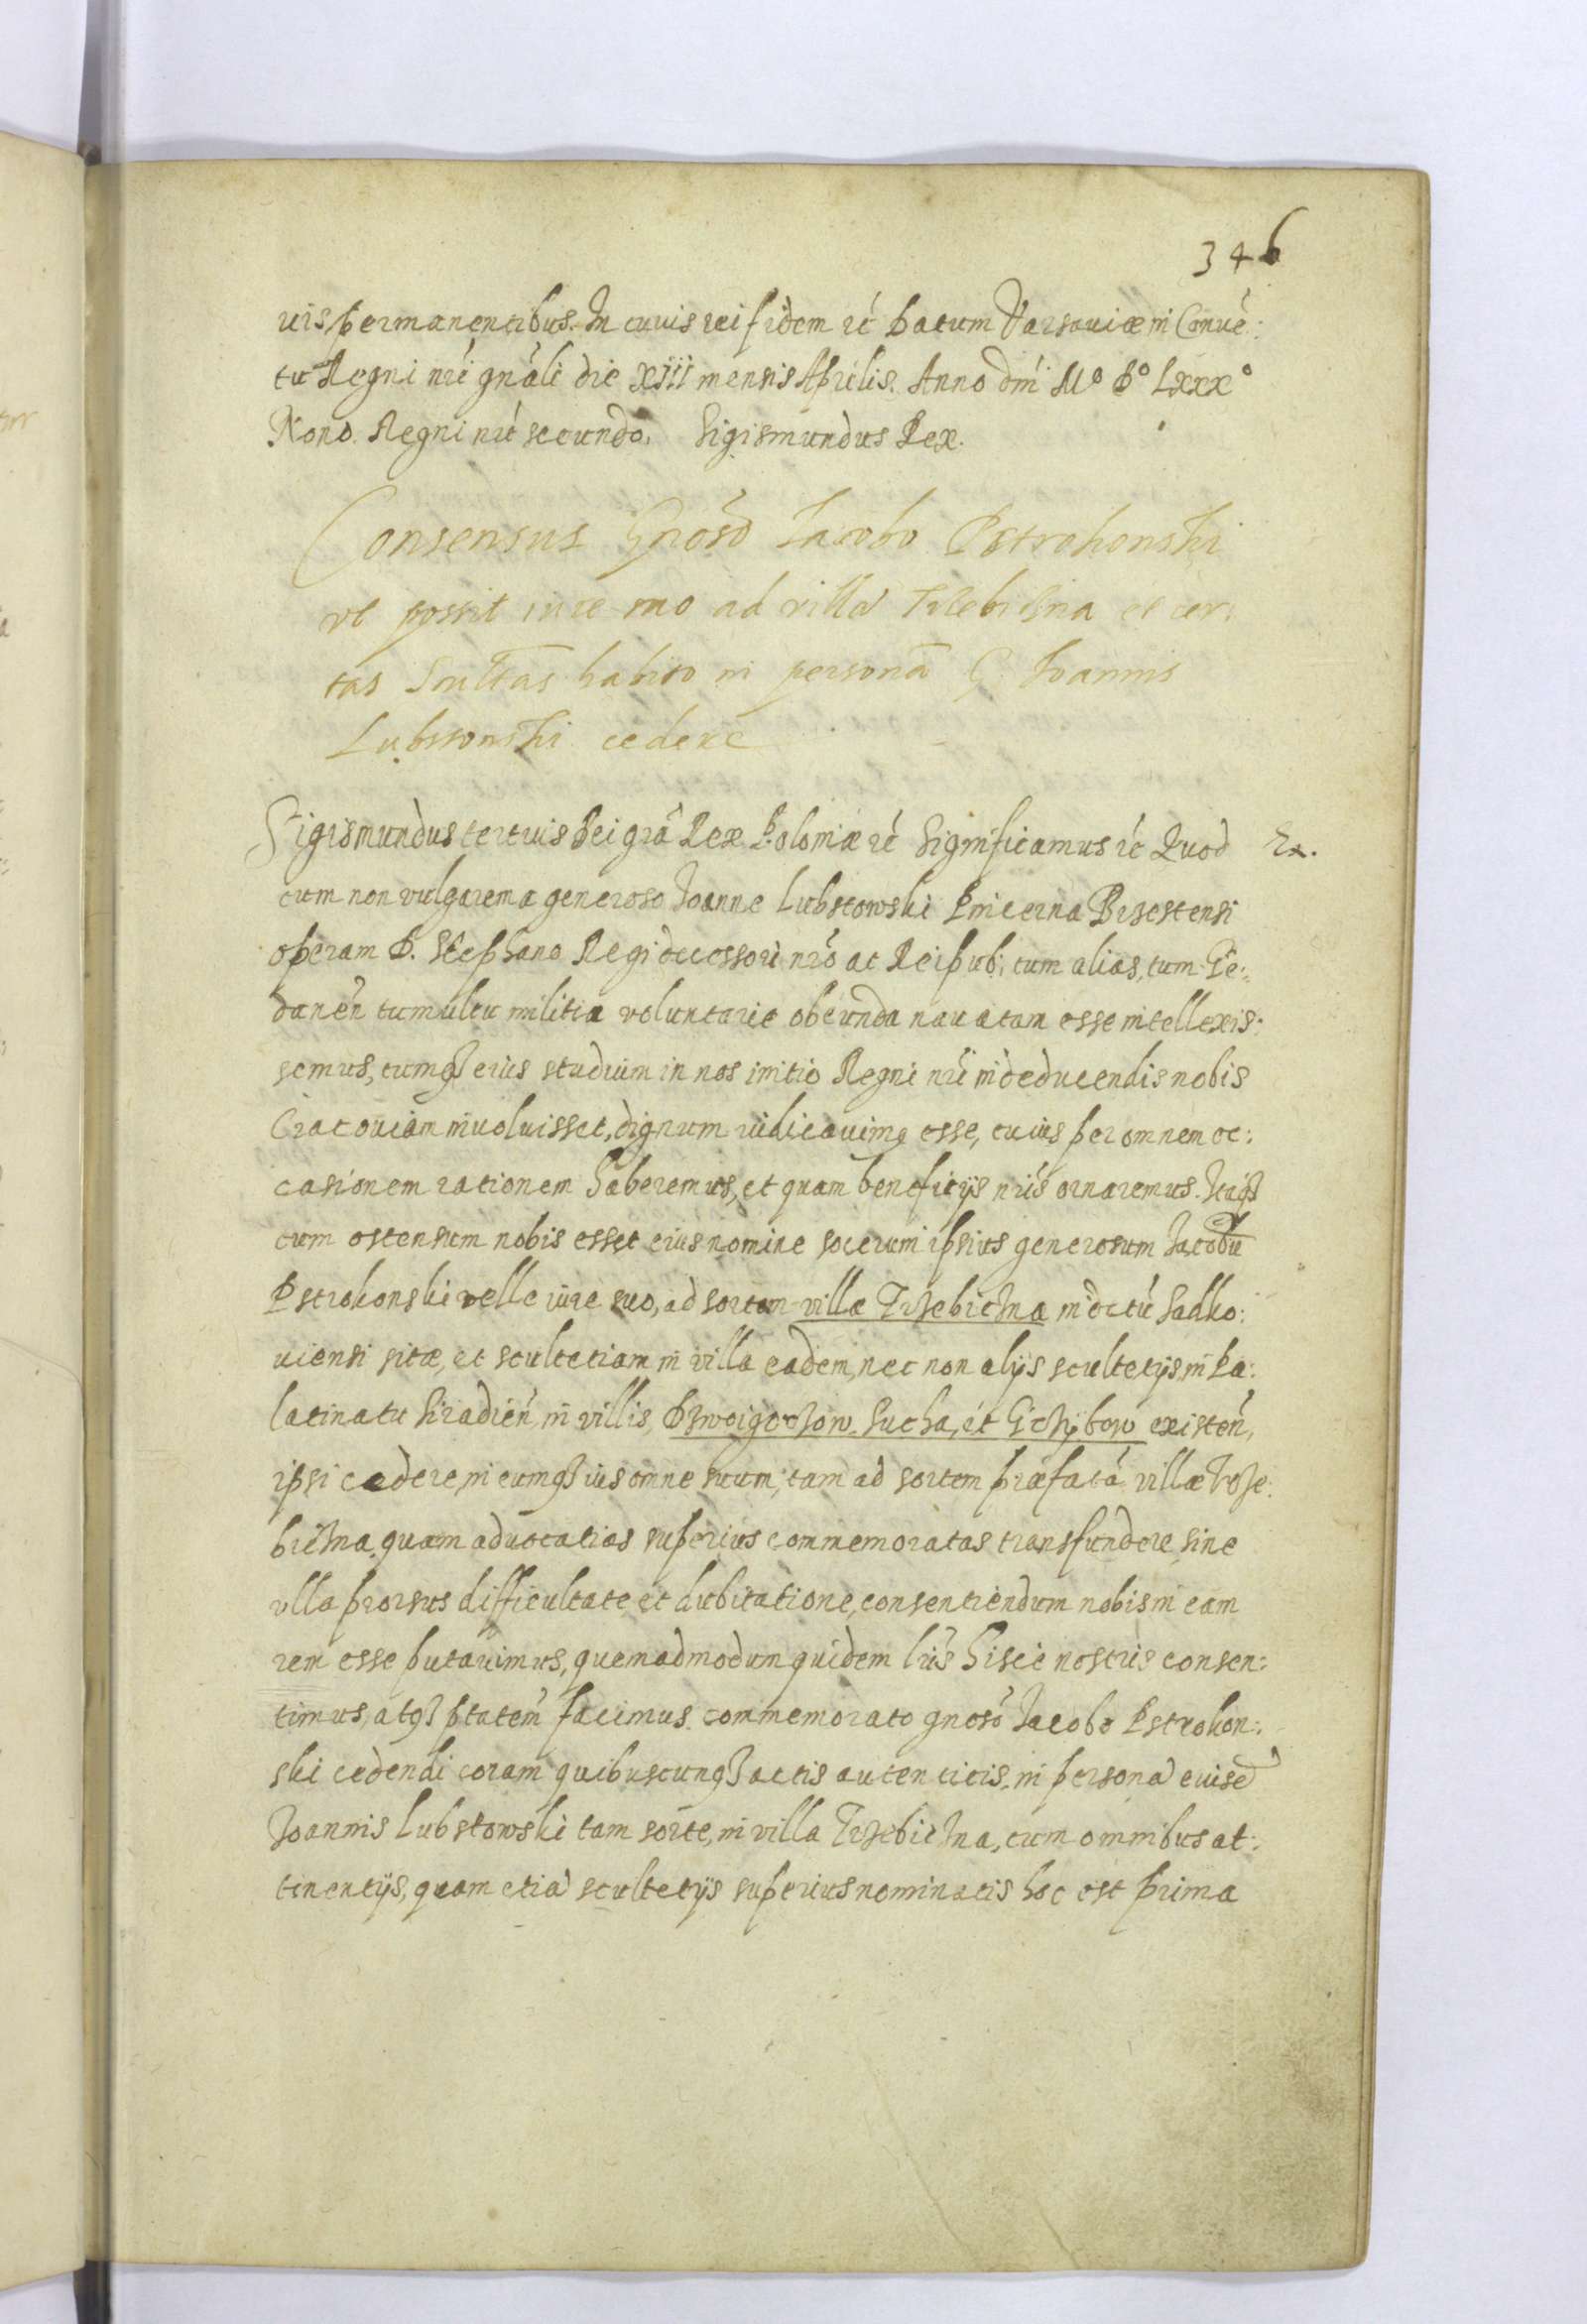 346
uis permanentibus. In cuius rei fidem rč Datum Varsauiæ in Conuē:
tu Regni nri gnāli die XIII mensis Aprilis. Anno dni Mº Dº Lxxxº
Nono. Regni nri secundo. Sigismundus Rex.
Consensus Gnoso Jacobo Pstrokonski
vt possit iure suo ad villā Trzebiczna et cer:
tas Scultas habito in personā G. Joannis
Lubstowski cedere
Sigismundus tertius Dei grā Rex Poloniæ rč Significamus rč Quod
Ex.
cum non vulgarem a generoso Joanne Lubstowski Pincerna Brzestensi
operam D. Stephano Regi decessori nrō ac Reipub: tum alias, tum Ge:
danen̄ tumultu militia voluntarie obeunda nauatam esse intellexis:
semus, cumq3 eius studium in nos initio Regni nri in deducendis nobis
Cracouiam inuoluisset, dignum iudicauimq esse, cuius per omnem oc:
casionem rationem haberemus, et quam beneficijs nris ornaremus. Itaq3
cum ostensum nobis esset eius nomine socerum ipsius generosum Jacobū
Pstrokonski velle iure suo, ad sortem villæ Trzebiczna in dctū Sadko:
uiensi sitæ, et scultetiam in villa eadem, nec non alijs scultetijs in Pa:
latinatu Siradien̄ in villis, Sucha, et existen̄,
ipsi cedere, in eumq3 ius omne suum, tam ad sortem præfatā villæ Trze:
biczna, quam aduocatias superius commemoratas transfundere sine
vlla prorsus difficultate et dubitatione, consentiendum nobis in eam
rem esse putauimus, quemadmodum quidem lris hisce nostris consen:
timus, atq3 ptatem̄ facimus. commemorato gnosō Jacobo Pstrokon:
ski cedendi coram quibuscunq3 actis autenticis, in personā euisd
Joannis Lubstowski tam sorte, in villa Trzebiczna, cum omnibus at:
tinentijs, quam etiā scultetijs superius nominatis hoc est prima